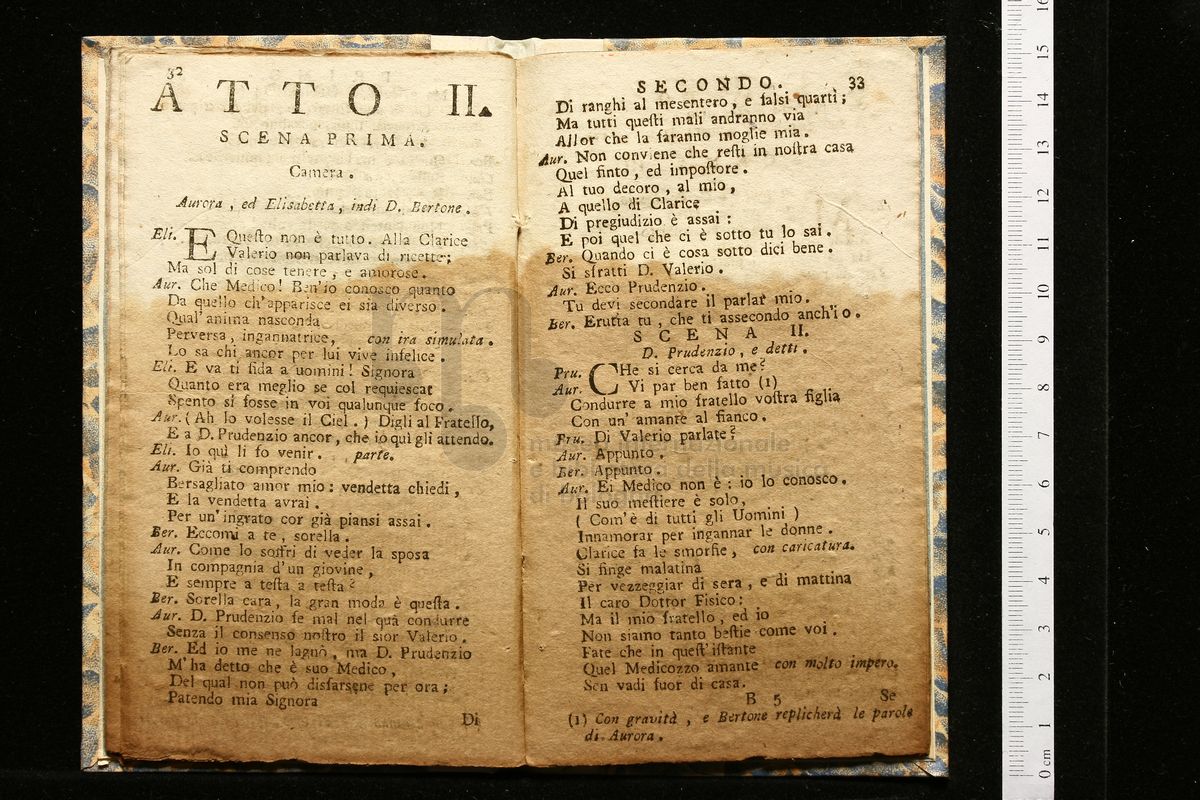 32
ATTO II.
SCENA PRIMA.
Camera.
Aurora, ed Elisabetta, indi D. Bertone.
Eli. E Questo non è tutto. Alla Clarice
Valerio non parlava di ricette;
Ma sol di cose tenere, e amorose.
Aur. Che Medico! Ben'io conosco quanto
Da quello ch'apparisce ei sia diverso.
Qual'anima nasconda
Perversa, ingannatrice, con ira simulata.
Lo sa chi ancor per lui vive infelice.
Eli. E va ti fida a uomini! Signora
Quanto era meglio se col requiescat
Spento si fosse in voi qualunque foco.
Aur. (Ah lo volesse il Ciel.) Digli al Fratello,
E a D. Prudenzio ancor, che io quì gli attendo.
Eli. Io quì li fo venir. parte.
Aur. Già ti comprendo
Bersagliato amor mio: vendetta chiedi,
E la vendetta avrai.
Per un'ingrato cor già piansi assai.
Ber. Eccomi a te, sorella.
Aur. Come lo soffri di veder la sposa
In compagnia d'un giovine,
E sempre a testa a testa?
Ber. Sorella cara, la gran moda è questa.
Aur. D. Prudenzio fe mal nel quà condurre
Senza il consenso nostro il sior Valerio.
Ber. Ed io me ne lagnò, ma D. Prudenzio
M'ha detto che è suo Medico,
Del qual non può disfarsene per ora;
Patendo mia Signora
Di
SECONDO. 33
Di ranghi al mesentero, e falsi quarti;
Ma tutti questi mali andranno via
Allor che la faranno moglie mia.
Aur. Non conviene che resti in nostra casa
Quel finto, ed impostore.
Al tuo decoro, al mio,
A quello di Clarice
Di pregiudizio è assai:
E poi quel che ci è sotto tu lo sai.
Ber. Quando ci è cosa sotto dici bene.
Si sfratti D. Valerio.
Aur. Ecco Prudenzio.
Tu devi secondare il parlar mio.
Ber. Erutta tu, che ti assecondo anch'io.
SCENA II.
D. Prudenzio, e detti.
Pru. CHe si cerca da me?
Aur. Vi par ben fatto (1)
Condurre a mio fratello vostra figlia
Con un' amante al fianco.
Pru. Di Valerio parlate?
Aur. Appunto.
Ber. Appunto.
Aur. Ei Medico non è: io lo conosco.
Il suo mestiere è solo,
( Com'è di tutti gli Uomini )
Innamorar per ingannar le donne.
Clarice fa le smorfie, con caricatura.
Si finge malatina
Per vezzeggiar di sera, e di mattina
Il caro Dottor Fisico:
Ma il mio fratello, ed io
Non siamo tanto bestie come voi.
Fate che in quest'istante
Quel Medicozzo amante con molto impero.
Sen vadi fuor di casa.
B 5 Se
(1) Con gravità, e Bertone replicherà le parole
di Aurora.
0 cm 1 2 3 4 5 6 7 8 9 10 11 12 13 14 15 16